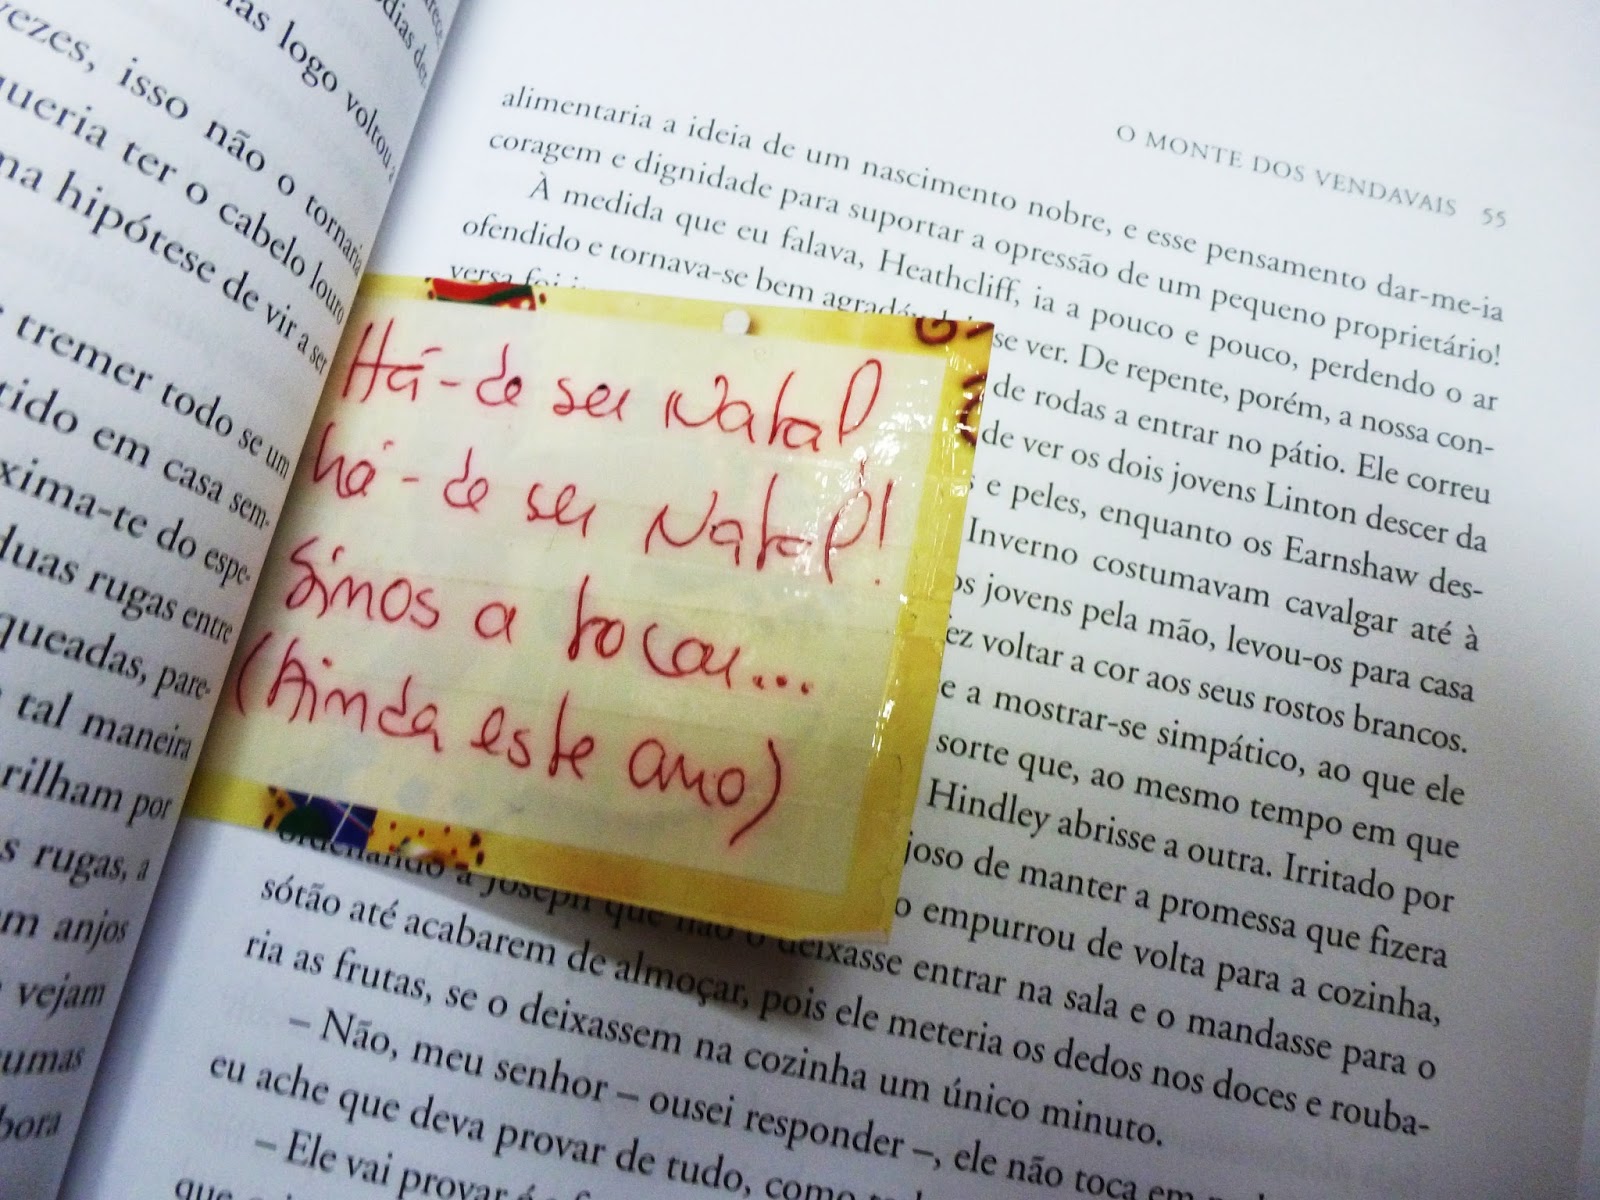 mas logo voltou à
vezes, isso não o tornaria
queria ter o cabelo louro
na hipótese de vir a ser
tremer todo se um
tido em casa sem-
xima-te do espe-
duas rugas entre
queadas, pare-
tal maneira
rilham por
s rugas, a
m anjos
vejam
umas
bora
O MONTE DOS VENDAVAIS 55
alimentaria a ideia de um nascimento nobre, e esse pensamento dar-me-ia
coragem e dignidade para suportar a opressão de um pequeno proprietário!
À medida que eu falava, Heathcliff, ia a pouco e pouco, perdendo o ar
ofendido e tornava-se bem agradável de se ver. De repente, porém, a nossa con-
versa foi de rodas a entrar no pátio. Ele correu
de ver os dois jovens Linton descer da
e peles, enquanto os Earnshaw des-
Inverno costumavam cavalgar até à
os jovens pela mão, levou-os para casa
ez voltar a cor aos seus rostos brancos.
e a mostrar-se simpático, ao que ele
sorte que, ao mesmo tempo em que
Hindley abrisse a outra. Irritado por
joso de manter a promessa que fizera
o empurrou de volta para a cozinha,
ordenando a Joseph que não o deixasse entrar na sala e o mandasse para o
sótão até acabarem de almoçar, pois ele meteria os dedos nos doces e rouba-
ria as frutas, se o deixassem na cozinha um único minuto.
– Não, meu senhor – ousei responder –, ele não toca em
eu ache que deva provar de tudo, como
– Ele vai provar
que
Há-de ser Natal
há-de ser Natal!
Sinos a tocar...
(Ainda este ano)